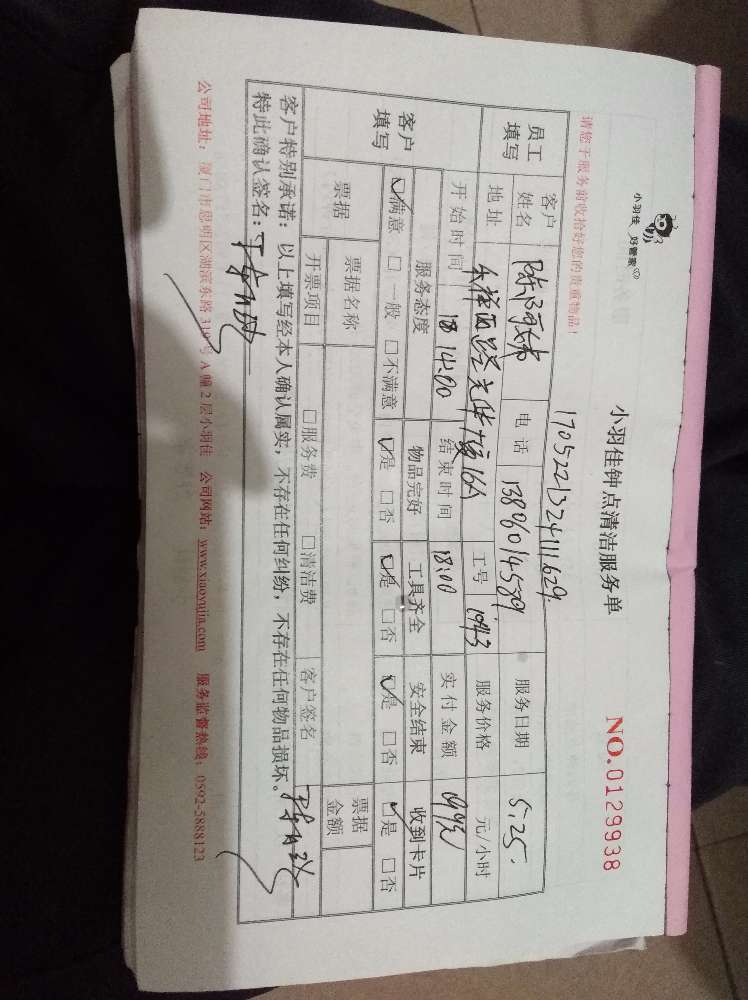 小羽佳 好管家
小羽佳钟点清洁服务单
NO.0129938
请您于服务前收拾好您的贵重物品!
17052213241629
员工填写 客户姓名 电话 13860145789 服务日期 5.25.
地址 工号 1943 服务价格 元/小时
开始时间 14:00 结束时间 18:00 实付金额
客户填写 服务态度 物品完好 工具齐全 安全结束 收到卡片
☑满意 □一般 □不满意 ☑是 □否 ☑是 □否 ☑是 □否 ☑是 □否
票据 票据名称 票据金额
开票项目 □服务费 □清洁费 客户签名
客户特别承诺:以上填写经本人确认属实,不存在任何纠纷,不存在任何物品损坏。
特此确认签名:
公司地址:厦门市思明区湖滨东路319号A幢2层小羽佳 公司网站:www.xiaoyujia.com 服务监督热线:0592-5888123